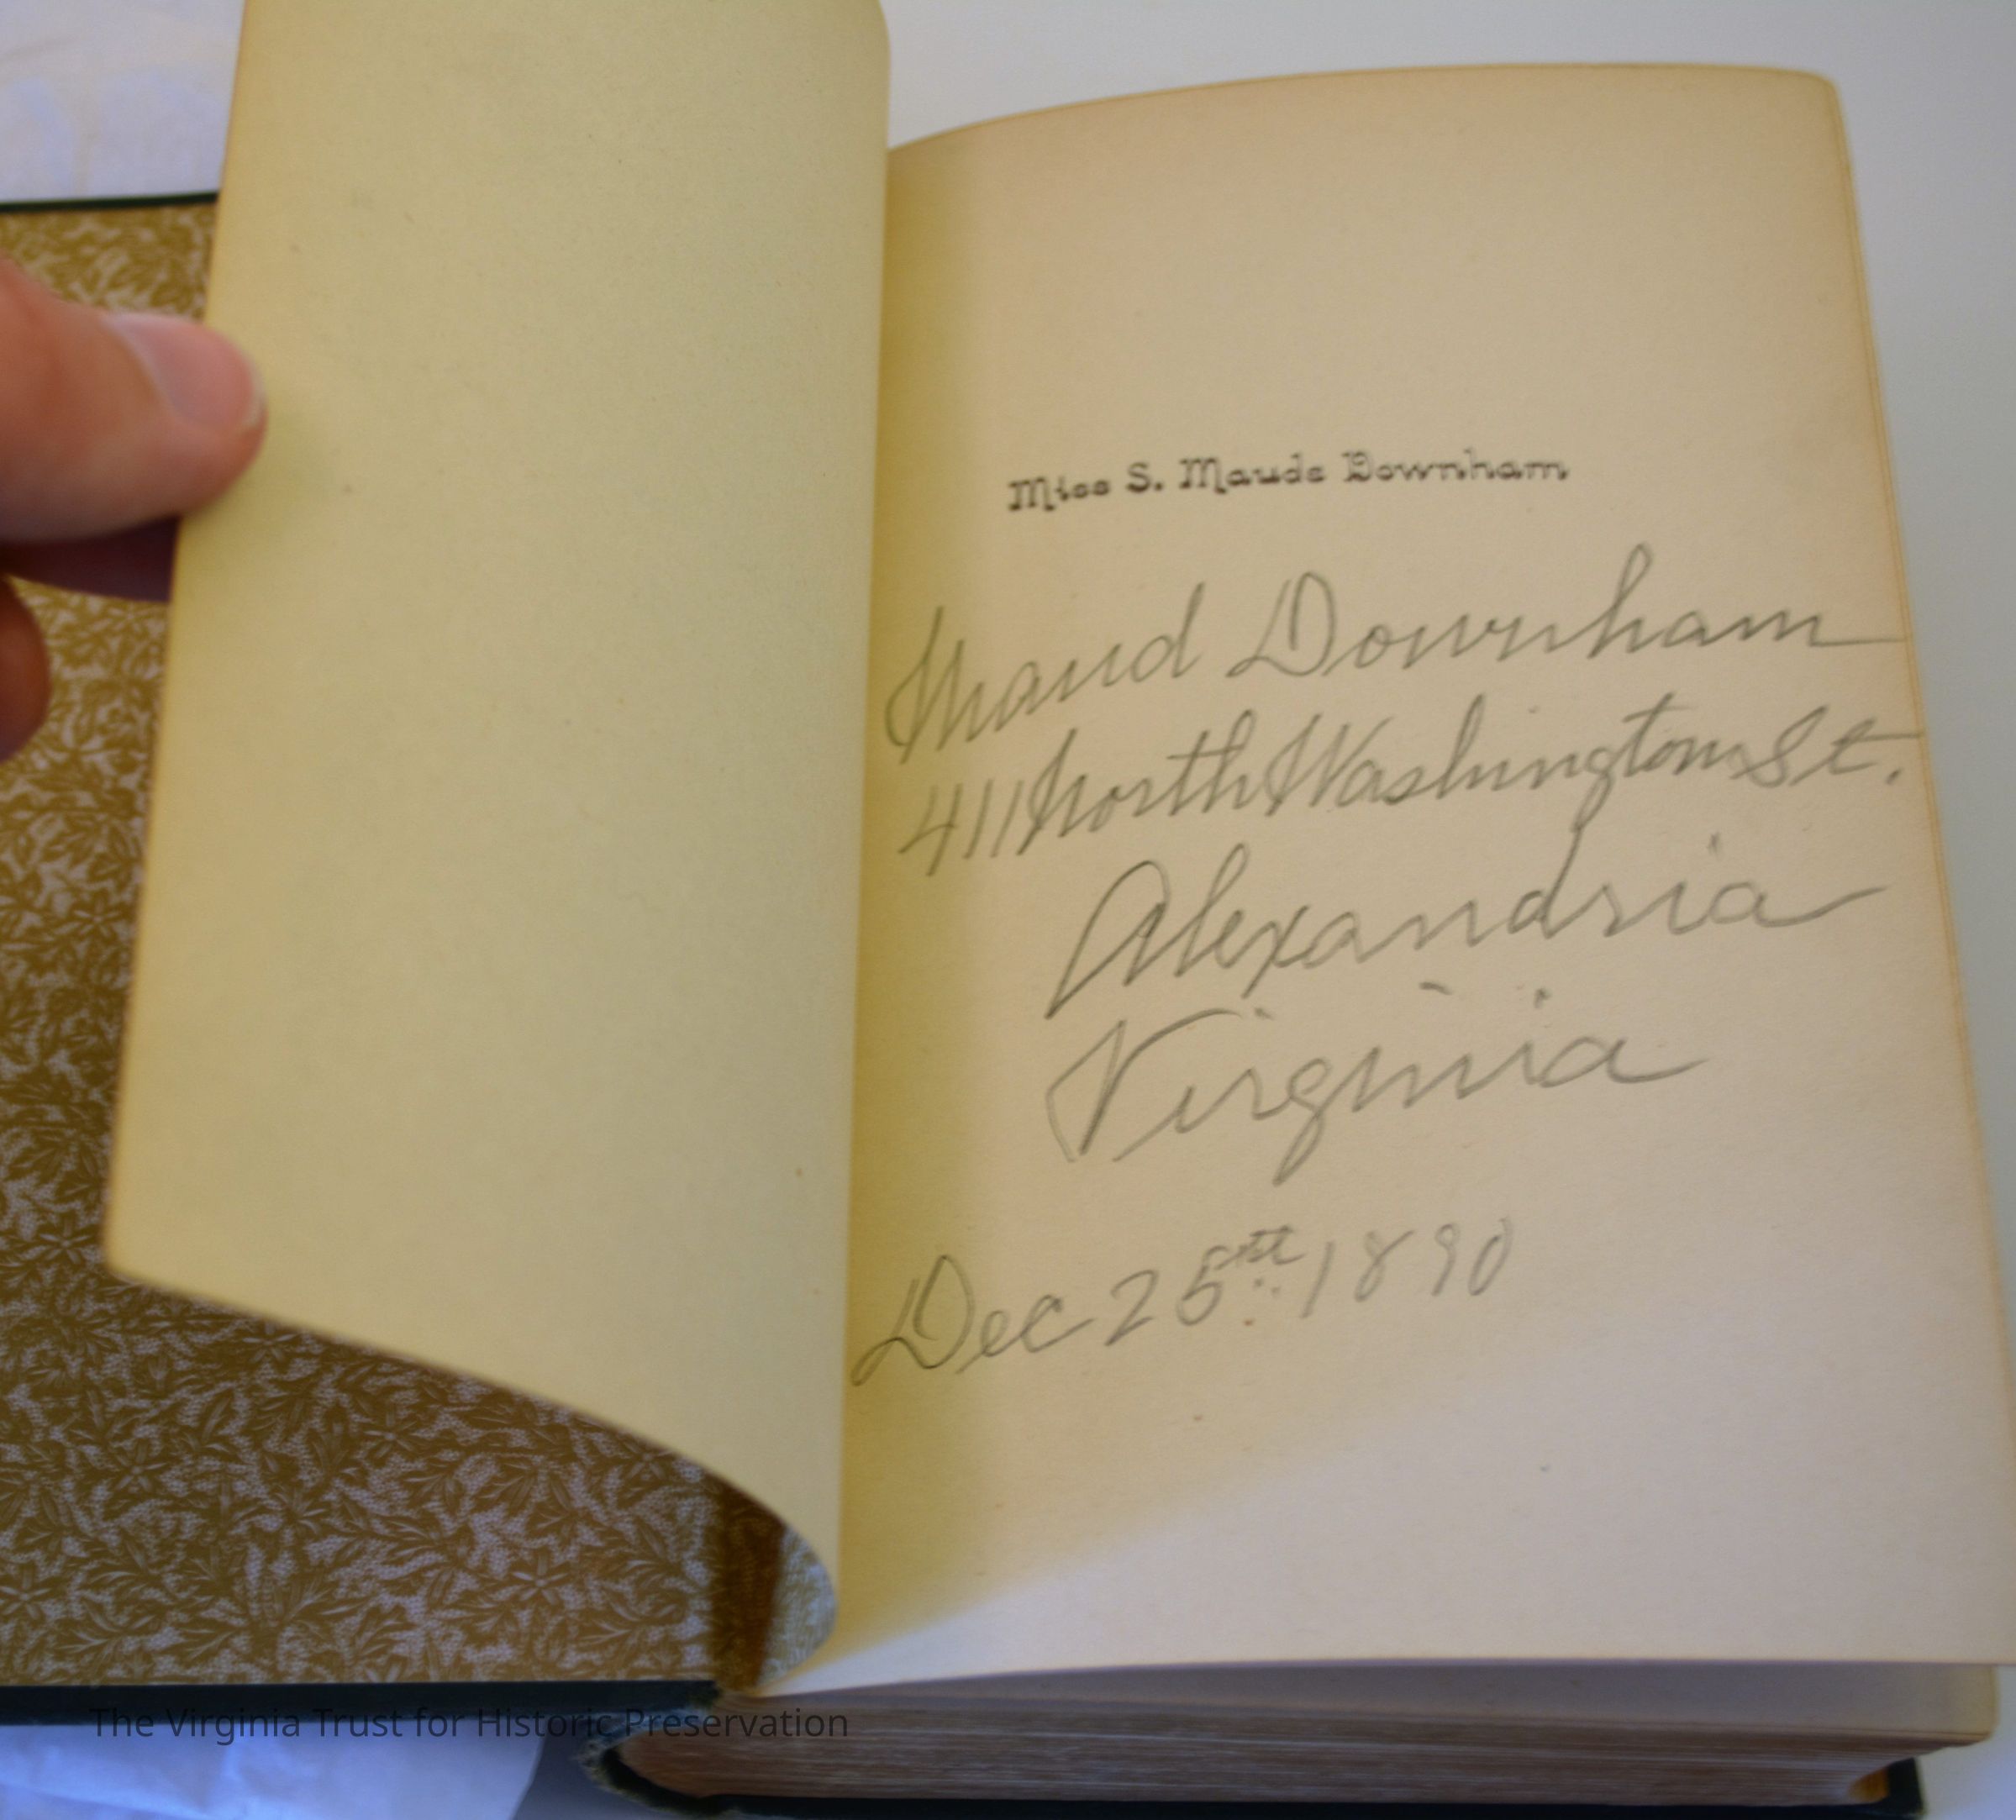 Miss S. Maude Downham
Maud Downham
411 North Washington St.
Alexandria
Virginia
Dec 25th 1890
The Virginia Trust for Historic Preservation